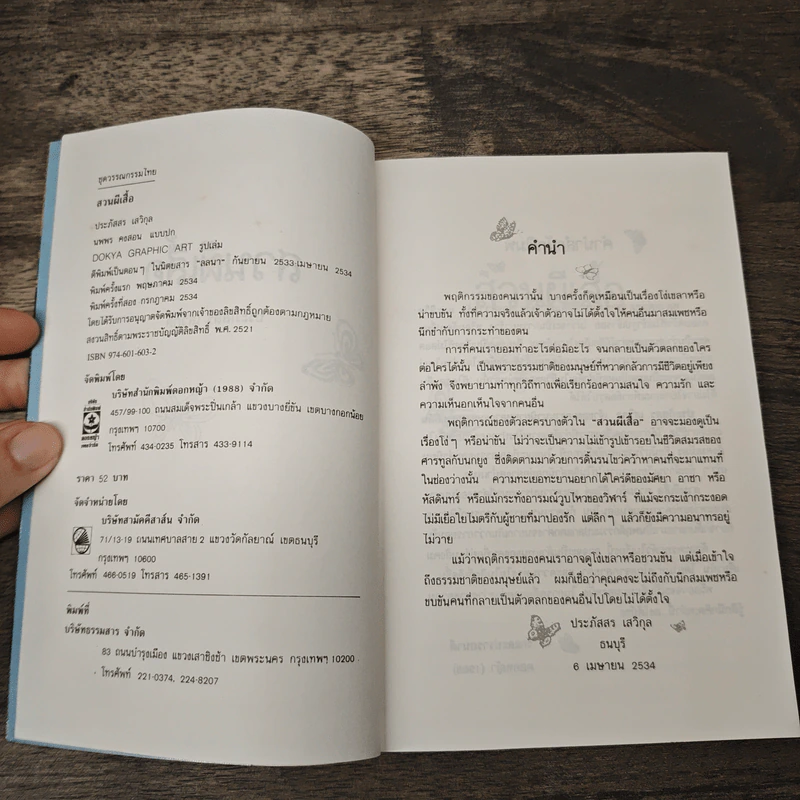 ชุดวรรณกรรมไทย
สวนผีเสื้อ
ประภัสสร เสวิกุล
นพพร คงสอน แบบปก
DOKYA GRAPHIC ART รูปเล่ม
ตีพิมพ์เป็นตอนๆ ในนิตยสาร "ลลนา" กันยายน 2533-เมษายน 2534
พิมพ์ครั้งแรก พฤษภาคม 2534
พิมพ์ครั้งที่สอง กรกฎาคม 2534
โดยได้รับการอนุญาตจัดพิมพ์จากเจ้าของลิขสิทธิ์ถูกต้องตามกฎหมาย
สงวนสิทธิ์ตามพระราชบัญญัติลิขสิทธิ์ พ.ศ. 2521
ISBN 974-601-603-2
จัดพิมพ์โดย
บริษัทสำนักพิมพ์ดอกหญ้า (1988) จำกัด
457/99-100 ถนนสมเด็จพระปิ่นเกล้า แขวงบางยี่ขัน เขตบางกอกน้อย
กรุงเทพฯ 10700
โทรศัพท์ 434-0235 โทรสาร 433-9114
ราคา 52 บาท
จัดจำหน่ายโดย
บริษัทสามัคคีสาส์น จำกัด
71/13-19 ถนนเทศบาลสาย 2 แขวงวัดกัลยาณ์ เขตธนบุรี
กรุงเทพฯ 10600
โทรศัพท์ 466-0519 โทรสาร 465-1391
พิมพ์ที่
บริษัทธรรมสาร จำกัด
83 ถนนบำรุงเมือง แขวงเสาชิงช้า เขตพระนคร กรุงเทพฯ 10200
โทรศัพท์ 221-0374, 224-8207
คำนำ
พฤติกรรมของคนเรานั้น บางครั้งก็ดูเหมือนเป็นเรื่องโง่เขลาหรือ
น่าขบขัน ทั้งที่ความจริงแล้วเจ้าตัวอาจไม่ได้ตั้งใจให้คนอื่นมาสมเพชหรือ
นึกขำกับการกระทำของตน
การที่คนเรายอมทำอะไรต่อมิอะไร จนกลายเป็นตัวตลกของใคร
ต่อใครได้นั้น เป็นเพราะธรรมชาติของมนุษย์ที่หวาดกลัวการมีชีวิตอยู่เพียง
ลำพัง จึงพยายามทำทุกวิถีทางเพื่อเรียกร้องความสนใจ ความรัก และ
ความเห็นอกเห็นใจจากคนอื่น
พฤติการณ์ของตัวละครบางตัวใน "สวนผีเสื้อ" อาจจะมองดูเป็น
เรื่องโง่ๆ หรือน่าขัน ไม่ว่าจะเป็นความไม่เข้ารูปเข้ารอยในชีวิตสมรสของ
สารทูลกับนกยูง ซึ่งติดตามมาด้วยการดิ้นรนไขว่คว้าหาคนที่จะมาแทนที่
ในช่องว่างนั้น ความทะเยอทะยานอยากได้ใคร่ดีของมัศยา อาชา หรือ
หัสดินทร์ หรือแม้กระทั่งอารมณ์วูบไหวของวิฬาร์ ที่แม้จะกระเง้ากระงอด
ไม่มีเยื่อใยไมตรีกับผู้ชายที่มาปองรัก แต่ลึกๆ แล้วก็ยังมีความอนาทรอยู่
ไม่วาย
แม้ว่าพฤติกรรมของคนเราอาจดูโง่เขลาหรือชวนขัน แต่เมื่อเข้าใจ
ถึงธรรมชาติของมนุษย์แล้ว ผมก็เชื่อว่าคุณคงจะไม่ถึงกับนึกสมเพชหรือ
ขบขันคนที่กลายเป็นตัวตลกของคนอื่นไปโดยไม่ได้ตั้งใจ
ประภัสสร เสวิกุล
ธนบุรี
6 เมษายน 2534